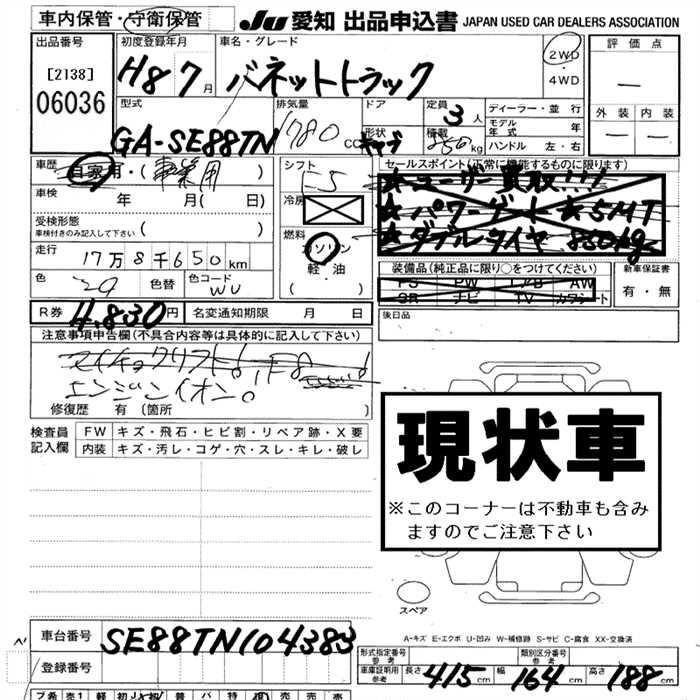 車内保管・守衛保管 JU 愛知 出品申込書 JAPAN USED CAR DEALERS ASSOCIATION
出品番号 初度登録年月 車名・グレード 2WD・4WD 評価点
[2138] 06036 H8 7月 バネットトラック —
型式 排気量 ドア 定員 3人 ディーラー・並行 外装 内装
GA-SE88TN 1780cc 形状 キャブ 積載 850kg モデル年式 年 — —
ハンドル 左・右
車歴 自家用・(事業用) シフト F5 セールスポイント(正常に機能するものに限ります)
★ユーザー買取!!!
車検 年 月( 日) 冷房 ★パワーゲート ★5MT
受検形態 車検付きのみ記入して下さい ( ) ★ダブルタイヤ 850kg
走行 17万8千650km 燃料 ガソリン・軽油 装備品(純正品に限り○をつけてください) 新車保証書
PS PW エアB AW 有・無
色 色替 色コード WU SR ナビ TV カワシート
R券 4,830円 名変通知期限 月 日 後日品
注意事項申告欄(不具合内容等は具体的に記入して下さい)
エンジンイオン。
修復歴 有(箇所 )
検査員記入欄 FW キズ・飛石・ヒビ割・リペア跡・X要
内装 キズ・汚レ・コゲ・穴・スレ・キレ・破レ
現状車
※このコーナーは不動車も含み
ますのでご注意下さい
スペア
A-キズ E-エクボ U-凹み W-補修跡 S-サビ C-腐食 XX-交換済
車台番号 SE88TN104383 形式指定番号 参考 類別区分番号 参考
登録番号 車庫証明用 参考 長さ 415cm 幅 164cm 高さ 188cm